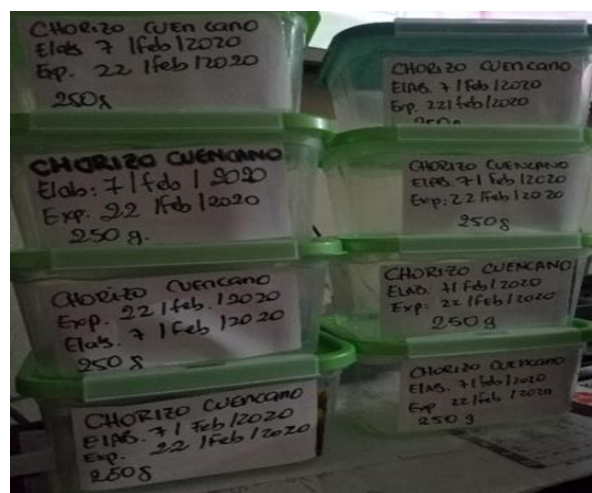 CHORIZO CUENCANO
Elab 7 /Feb/2020
Exp. 22 /feb/2020
250g
CHORIZO CUENCANO
Elab: 7/feb/2020
Exp. 22 /Feb/2020
250 g.
CHORIZO CUENCANO
Exp. 22/feb./2020
Elab. 7 /Feb/2020
250 g
CHORIZO CUENCANO
ELAB. 7/Feb/2020
Exp. 22/Feb/2020
250g
CHORIZO CUENCANO
ElAB. 7/Feb/2020
Exp. 22/feb/2020
250g
CHORIZO CUENCANO
ELAB. 7/Feb/2020
Exp: 22/Feb/2020
250g
CHORIZO CUENCANO
ELAB. 7/Feb/2020
Exp: 22/Feb/2020
250 g
CHORIZO CUENCANO
ElAB. 7/feb/2020
Exp 22/feb/2020
250 g